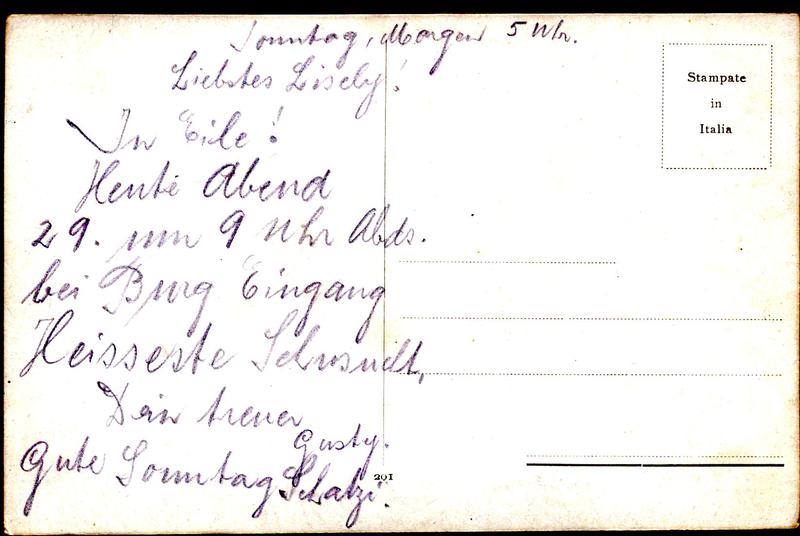 Sonntag, Morgen 5 Uhr.
Liebstes Lisely!
In Eile!
Heute Abend
29. um 9 Uhr Abds.
bei Burg Eingang
Heisseste Sehnsucht,
Dein treuer
Gusty.
Gute Sonntag Schatzi.
Stampate
in
Italia
201